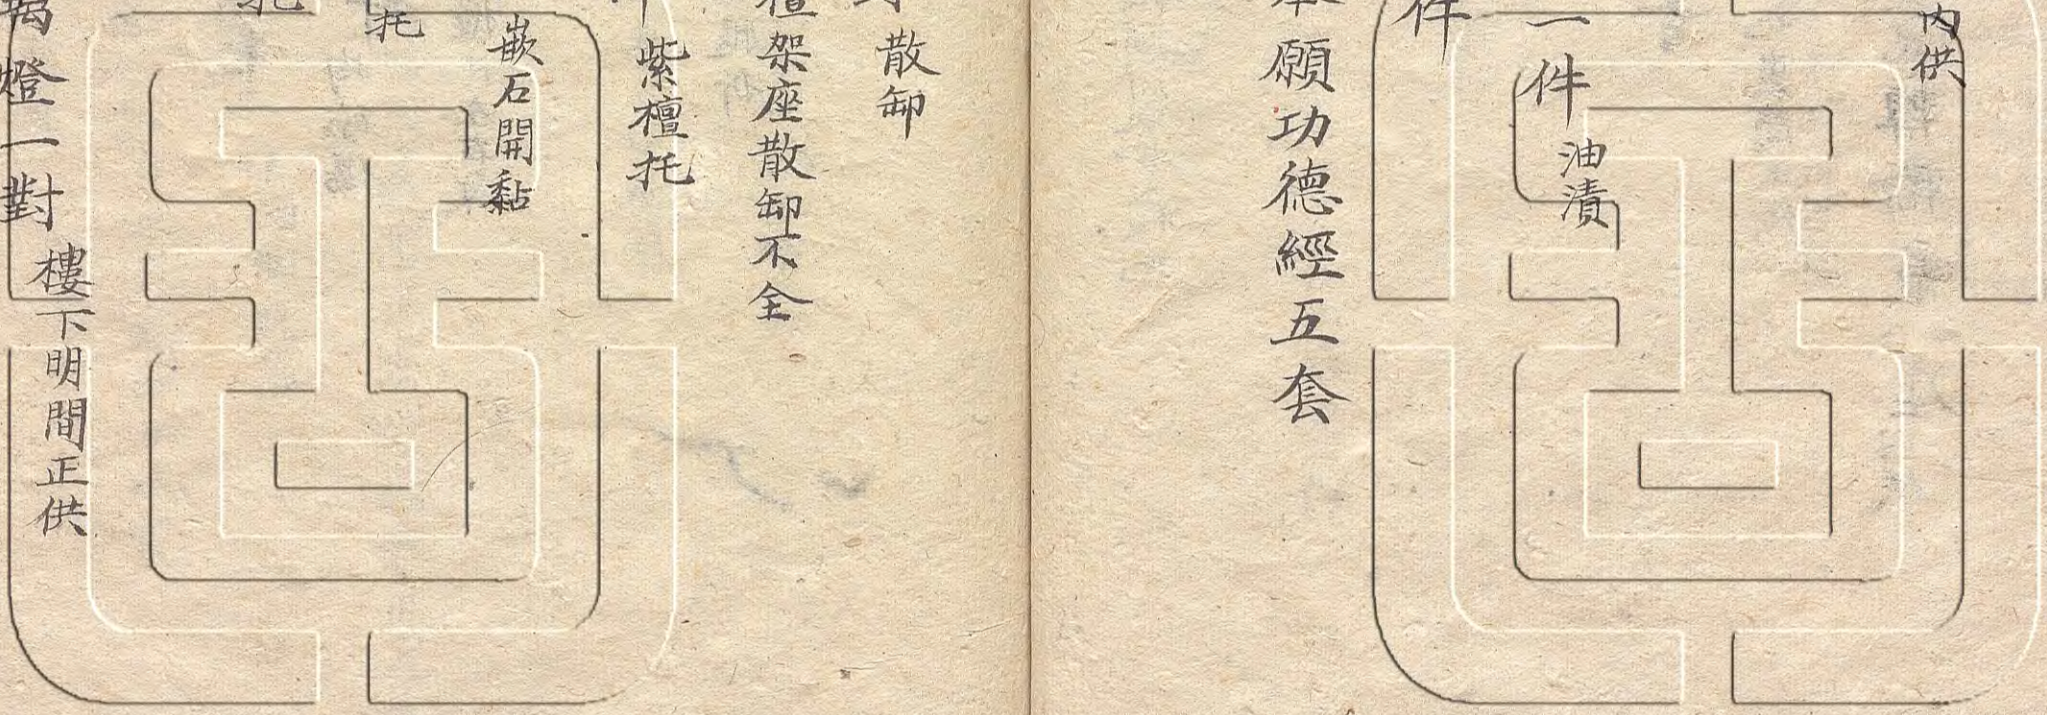 內供
一件 油漬
件
本願功德經五套
散卸
檀架座散卸不全
紫檀托
嵌石開黏
托
托
萬燈一對 樓下明間正供